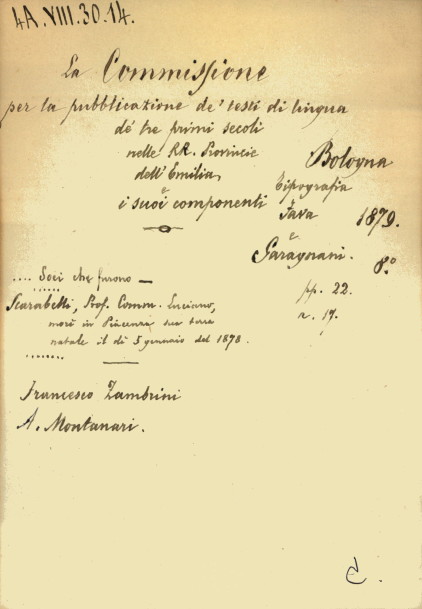 4A.VIII.30.14.
La Commissione
per la pubblicazione de' testi di lingua
de' tre primi secoli
nelle RR. Provincie
dell'Emilia,
e
i suoi componenti
Bologna
Tipografia
Fava 1879.
e
Garagnani. 8.°
pp. 22.
.... Soci che furono —
Scarabelli, Prof. Comm. Luciano,
morì in Piacenza sua terra
natale il dì 5 gennaio del 1878.
Francesco Zambrini
A. Montanari.